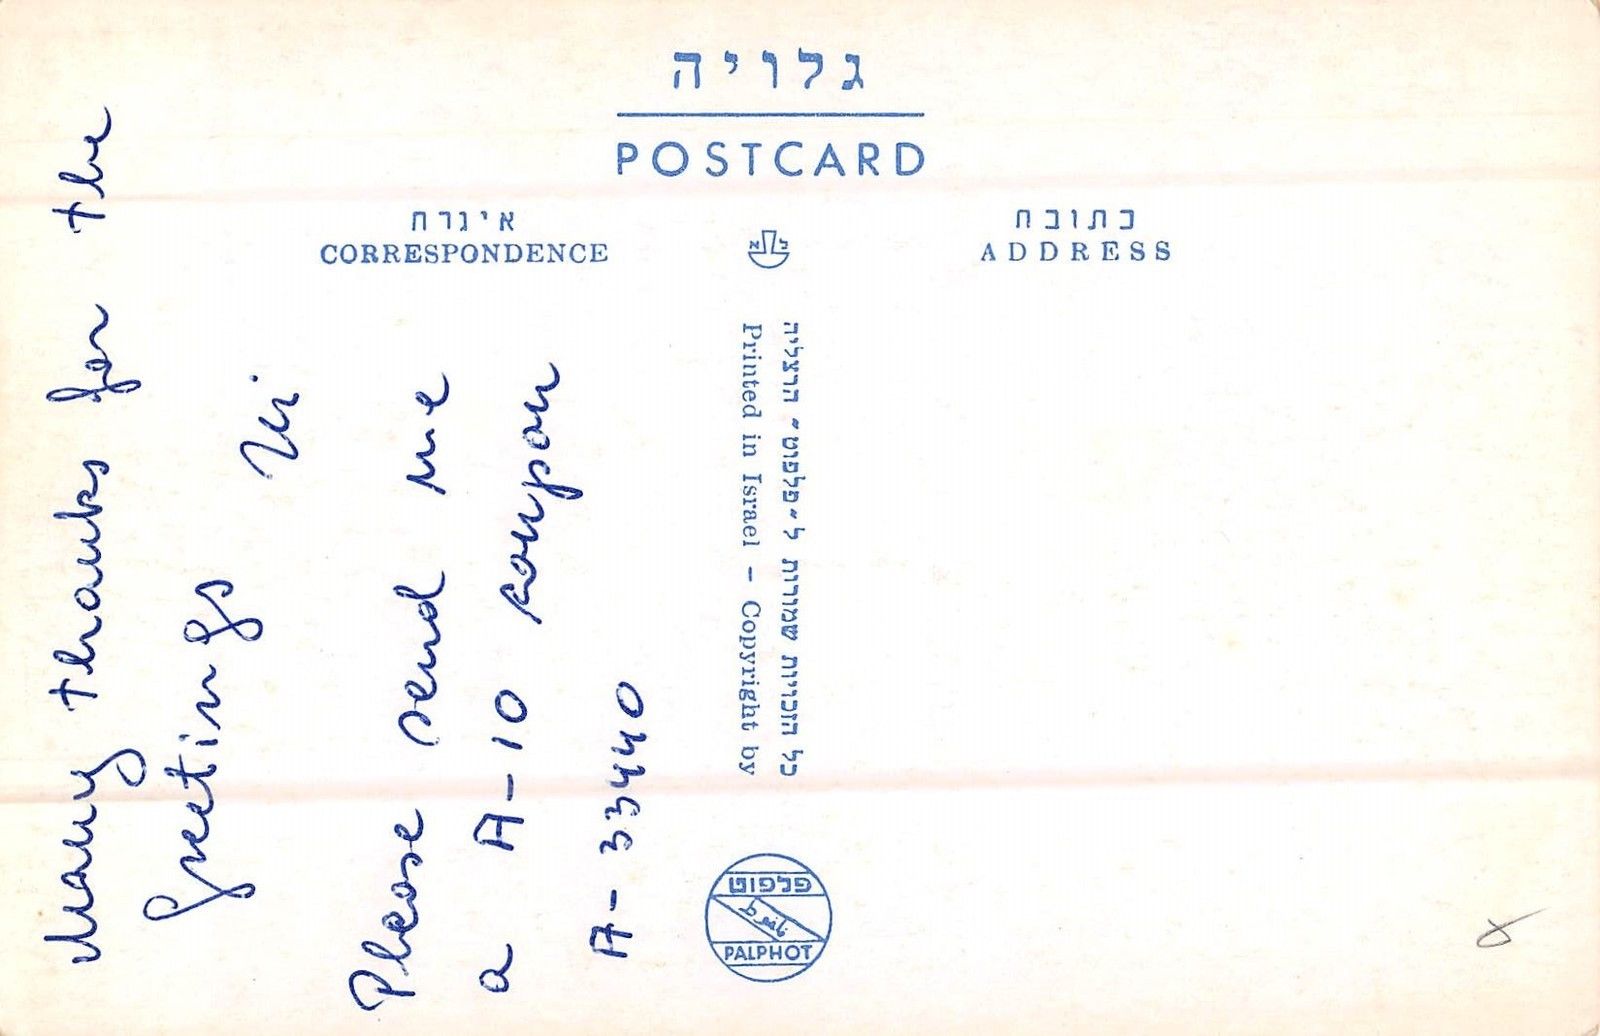 גלויה
POSTCARD
איגרת
CORRESPONDENCE
כתובת
ADDRESS
Many thanks for the
greetings
Please send me
a A-10 coupon
A-33440
כל הזכויות שמורות ל״פלפוט״ הרצליה
Printed in Israel – Copyright by
פלפוט
PALPHOT